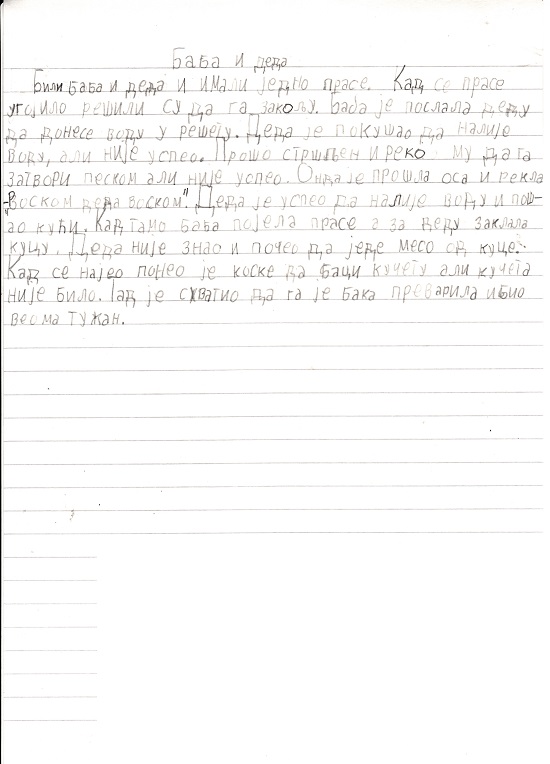 Баба и деда
Били баба и деда и имали једно прасе. Кад се прасе
угојило решили су да га закољу. Баба је послала деду
да донесе воду у решету. Деда је покушао да налије
воду, али није успео. Прошо стршљен и реко му да га
затвори песком али није успео. Онда је прошла оса и рекла
„Воском деда воском". Деда је успео да налије воду и пош-
ао кући. Кад тамо баба појела прасе а за деду заклала
куцу. Деда није знао и почео да једе месо од куце.
Кад се најео понео је коске да баци кучету али кучета
није било. Тад је схватио да га је бака преварила и био
веома тужан.